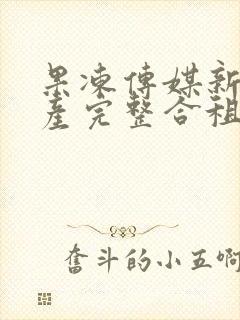 果凍傳媒新
產完整合租
奮斗的小五啊